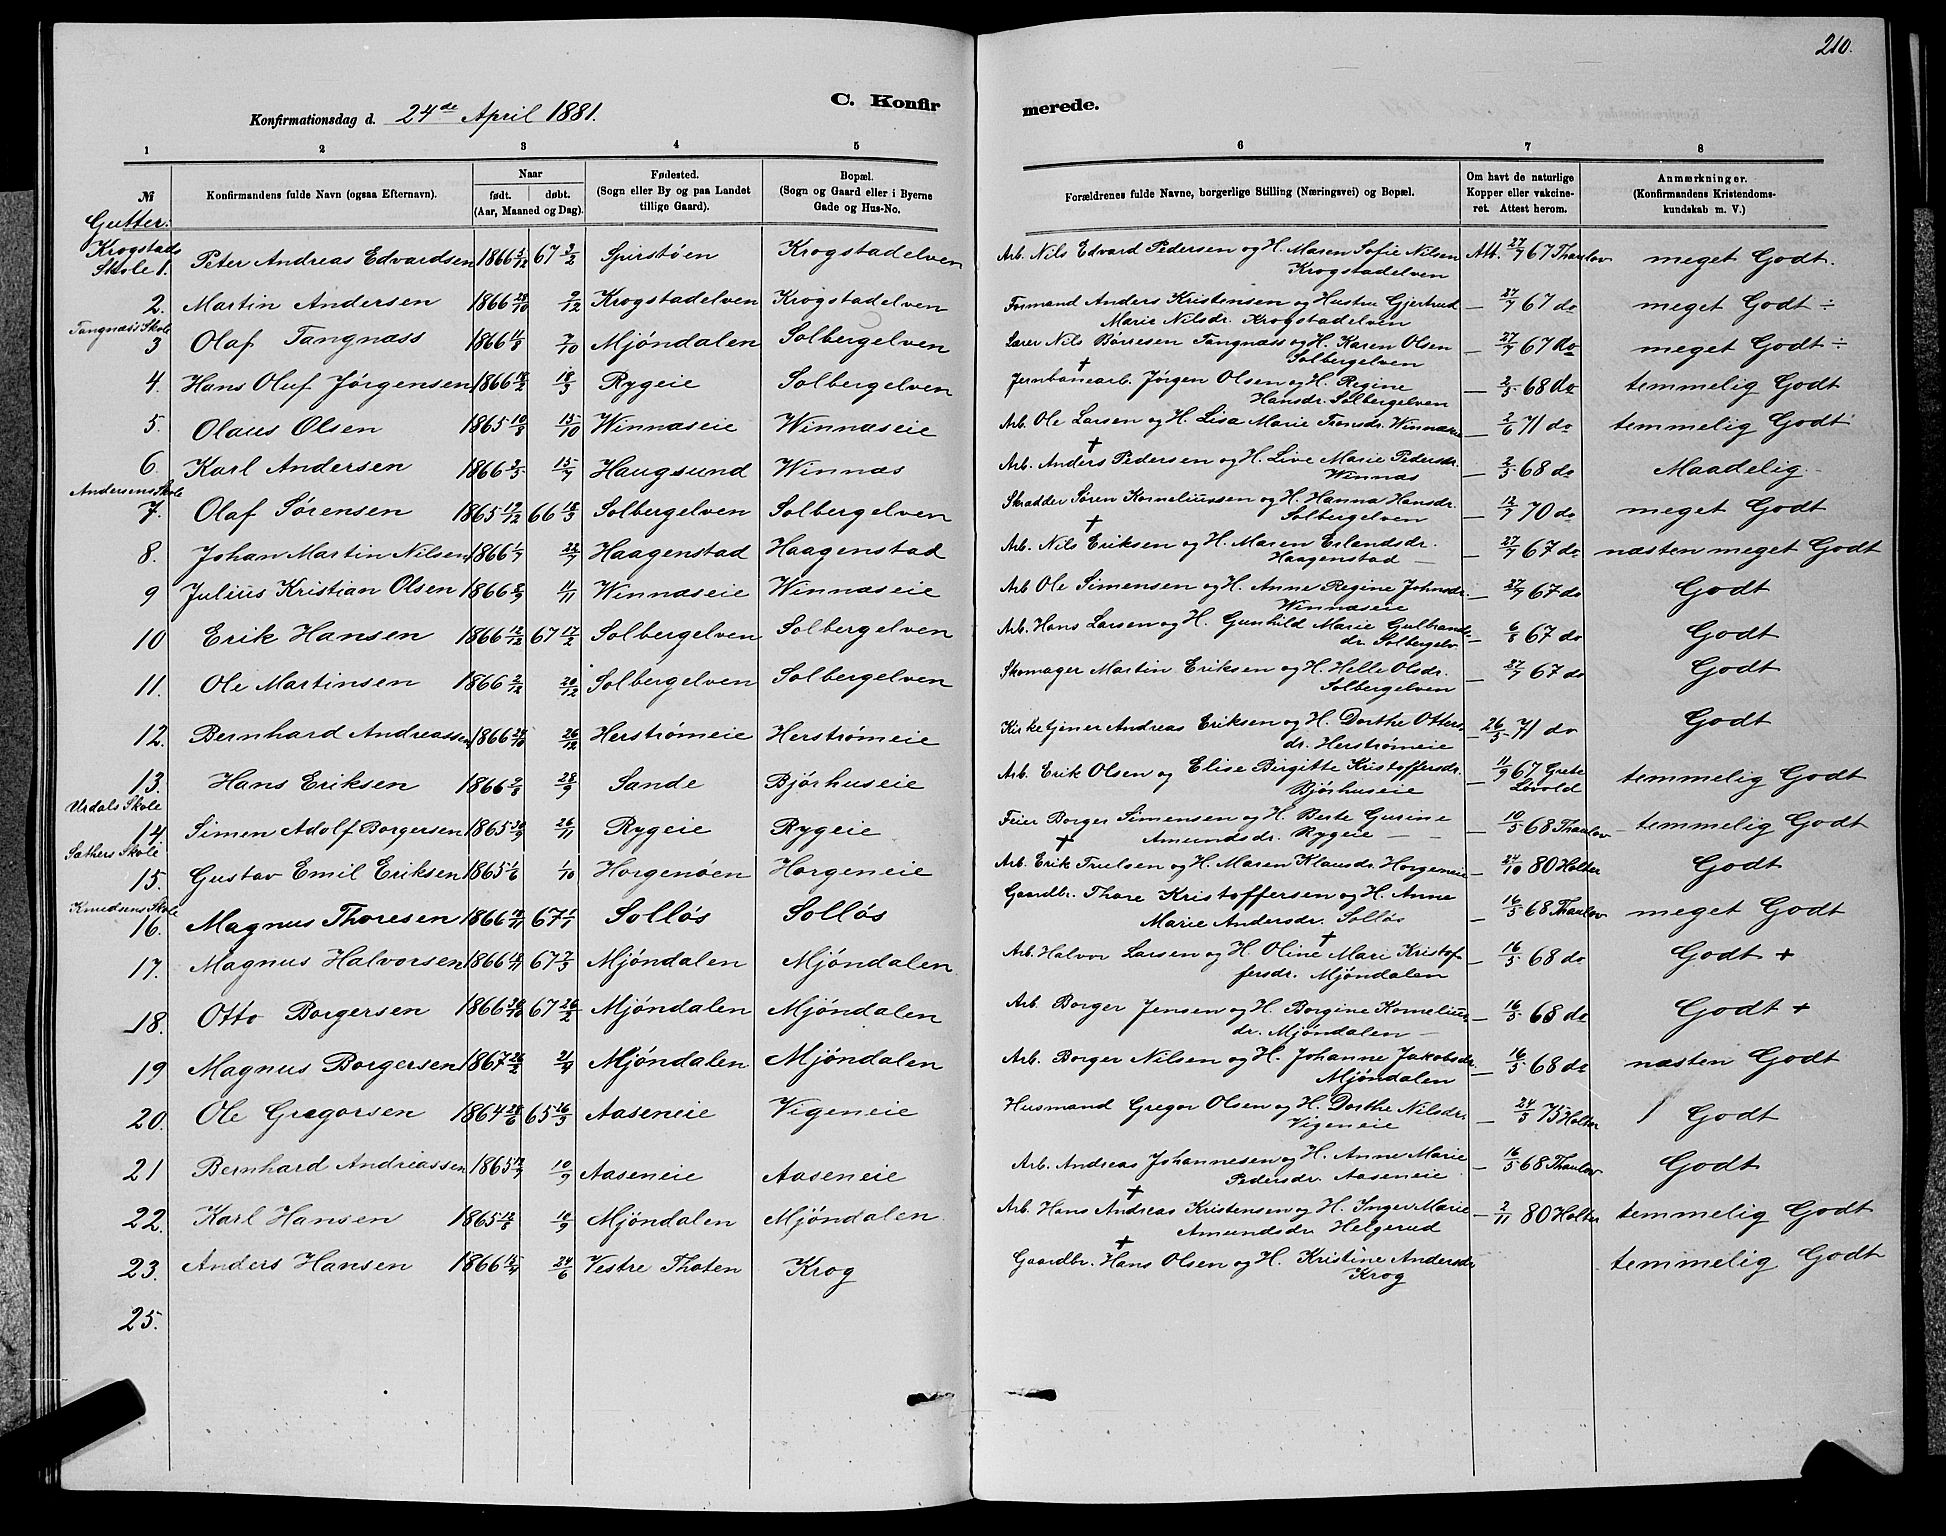 210.
C. Konfir
merede.
Konfirmationsdag d. 24de April 1881.
1 2 3 4 5 6 7 8
№
Konfirmandens fulde Navn (ogsaa Efternavn).
Naar
født. døbt.
(Aar, Maaned og Dag).
Fødested.
(Sogn eller By og paa Landet
tillige Gaard).
Bopæl.
(Sogn og Gaard eller i Byerne
Gade og Hus-No.
Forældrenes fulde Navne, borgerlige Stilling (Næringsvei) og Bopæl.
Om havt de naturlige
Kopper eller vakcine-
ret. Attest herom.
Anmærkninger.
(Konfirmandens Kristendoms-
kundskab m. V.)
Gutter:
Krogstads
Skole 1. Peter Andreas Edvardsen 1866 5/12 67 3/2 Spirstøen Krogstadelven Arb. Nils Edvard Pedersen og H. Maren Sofie Nilsen Att. 27/7 67 Thaulov meget Godt.
Krogstadelven
2. Martin Andersen 1866 28/10 9/12 Krogstadelven Krogstadelven Formand Anders Kristensen og Hustru Gjertrud — 27/7 67 do meget Godt ÷
Marie Nilsdr. Krogstadelven
Tangnæss Skole
3 Olaf Tangnæss 1866 11/8 7/10 Mjøndalen Solbergelven Lærer Nils Børresen Tangnæss og H. Karen Olsen — 27/7 67 do meget Godt ÷
Solbergelven
4. Hans Oluf Jørgensen 1866 18/2 18/3 Rygeie Solbergelven Jernbanearb. † Jørgen Olsen og H. Regine — 2/5 68 do temmelig Godt
Hansdr. Solbergelven
5. Olaus Olsen 1865 10/8 15/10 Winnæseie Winnæseie Arb. Ole Larsen og H. Lisa Marie Tronsdr. Winnæseie — 2/6 71 do temmelig Godt
6. Karl Andersen 1866 2/5 15/7 Haugsund Winnæs Arb. † Anders Pedersen og H. Live Marie Pedersdr. — 2/5 68 do Maadelig
Winnæs
Andersens Skole
7. Olaf Sørensen 1865 17/12 66 18/3 Solbergelven Solbergelven Skrædder Søren Korneliussen og H. Hanna Hansdr. — 12/7 70 do meget Godt
Solbergelven
8. Johan Martin Nilsen 1866 1/7 22/7 Haagenstad Haagenstad Arb. † Nils Eriksen og H. Maren Erlandsdr. — 27/7 67 do næsten meget Godt
Haagenstad —
9 Julius Kristian Olsen 1866 8/9 11/11 Winnæseie Winnæseie Arb Ole Simensen og H. Anne Regine Johnsdr. — 27/7 67 do Godt
Winnæseie
10 Erik Hansen 1866 12/12 67 17/2 Solbergelven Solbergelven Arb. Hans Larsen og H. Gunhild Marie Gulbrands- — 6/8 67 do Godt
dr. Solbergelv
11. Ole Martinsen 1866 2/12 20/12 Solbergelven Solbergelven Skomager Martin Eriksen og H. Helle Olsdr. — 27/7 67 do Godt
Solbergelven
12. Bernhard Andreassen 1866 28/10 26/12 Herstrømeie Herstrømeie Kirketjener Andreas Eriksen og H. Dorthe Otters- — 26/5 71 do Godt
dr. Herstrømeie
13. Hans Eriksen 1866 2/8 28/9 Sande Bjørhuseie Arb. Erik Olsen og Elise Birgitte Kristoffersdr. — 11/9 67 Grete temmelig Godt
Bjørhuseie Løvold
Usdals Skole
14 Simen Adolf Borgersen 1865 30/9 26/11 Rygeie Rygeie Feier Borger Simensen og H. Berte Gusine — 10/5 68 Thaulov — temmelig Godt
Amundsdr. Rygeie — —
Sæthers Skole
15. Gustav Emil Eriksen 1865 1/6 1/10 Horgenøen Horgeneie Arb. † Erik Truelsen og H. Maren Klausdr. Horgeneie — 24/10 80 Holter Godt
Knudsens Skole
16. Magnus Thoresen 1866 18/11 67 1/1 Solløs Solløs Gaardbr. Thore Kristoffersen og H. Anne — 16/5 68 Thaulov meget Godt
Marie Andersdr. Solløs
17. Magnus Halvorsen 1866 12/11 67 2/3 Mjøndalen Mjøndalen Arb. Halvor Larsen og H. Oline † Mari Kristof — 16/5 68 do Godt +
fersdr. Mjøndalen
18. Otto Borgersen 1866 30/10 67 26/2 Mjøndalen Mjøndalen Arb. Borger Jensen og H. Borgine Kornelius- — 16/5 68 do Godt +
dr. Mjøndalen —
19 Magnus Borgersen 1867 26/2 21/4 Mjøndalen Mjøndalen Arb. Borger Nilsen og H. Johanne Jakobsdr. — 16/5 68 do næsten Godt
Mjøndalen
20. Ole Gregorsen 1864 28/6 65 16/3 Aaseneie Vigeneie Husmand Gregor Olsen og H. Dorthe Nilsdr. — 24/5 75 Holter Godt
Vigeneie
21 Bernhard Andreassen 1865 12/7 10/9 Aaseneie Aaseneie Arb. Andreas Johannesen og H. Anne Marie — 16/5 68 Thaulov Godt
Pedersdr. Aaseneie
22. Karl Hansen 1865 12/6 10/9 Mjøndalen Mjøndalen Arb. Hans † Andreas Kristensen og H. Inger Marie — 2/11 80 Holter temmelig Godt
Amundsdr Helgerud
23. Anders Hansen 1866 15/4 24/6 Vestre Thoten Krog Gaardbr. † Hans Olsen og H. Kristine Andersdr temmelig Godt
Krog
25.